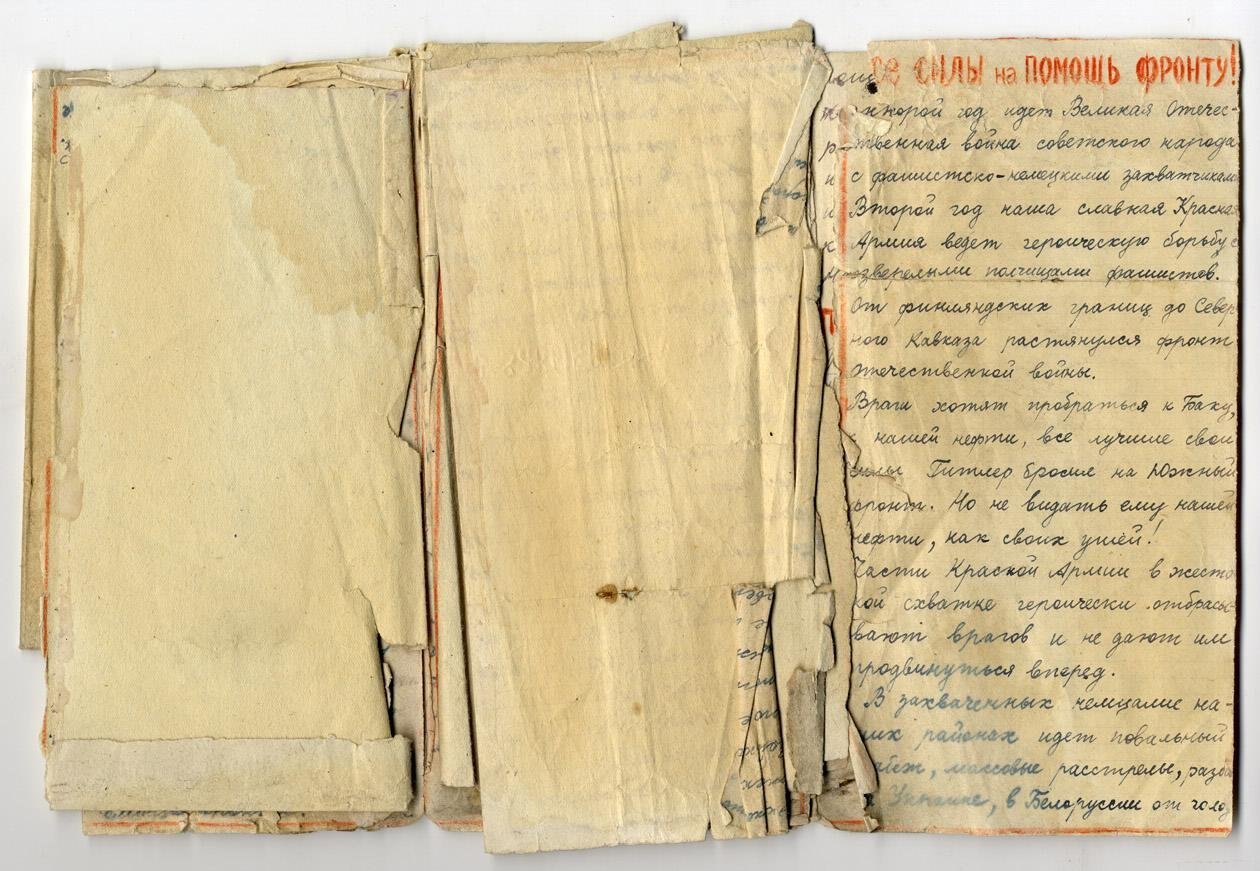 ВСЕ СИЛЫ на ПОМОЩЬ ФРОНТУ!
второй год идет Великая Отечес-
твенная война советского народа
с фашистско-немецкими захватчиками
Второй год наша славная Красная
Армия ведет героическую борьбу с
озверелыми полчищами фашистов.
От финляндских границ до Север
ного Кавказа растянулся фронт
отечественной войны.
Враги хотят пробраться к Баку,
к нашей нефти, все лучшие свои
силы Гитлер бросил на Южный
фронт. Но не видать ему нашей
нефти, как своих ушей!
Части Красной Армии в жесто
кой схватке героически отбрасы-
вают врагов и не дают им
продвинуться вперед.
В захваченных немцами на-
ших районах идет повальный
массовые расстрелы, разбой
Украине, в Белоруссии от голод